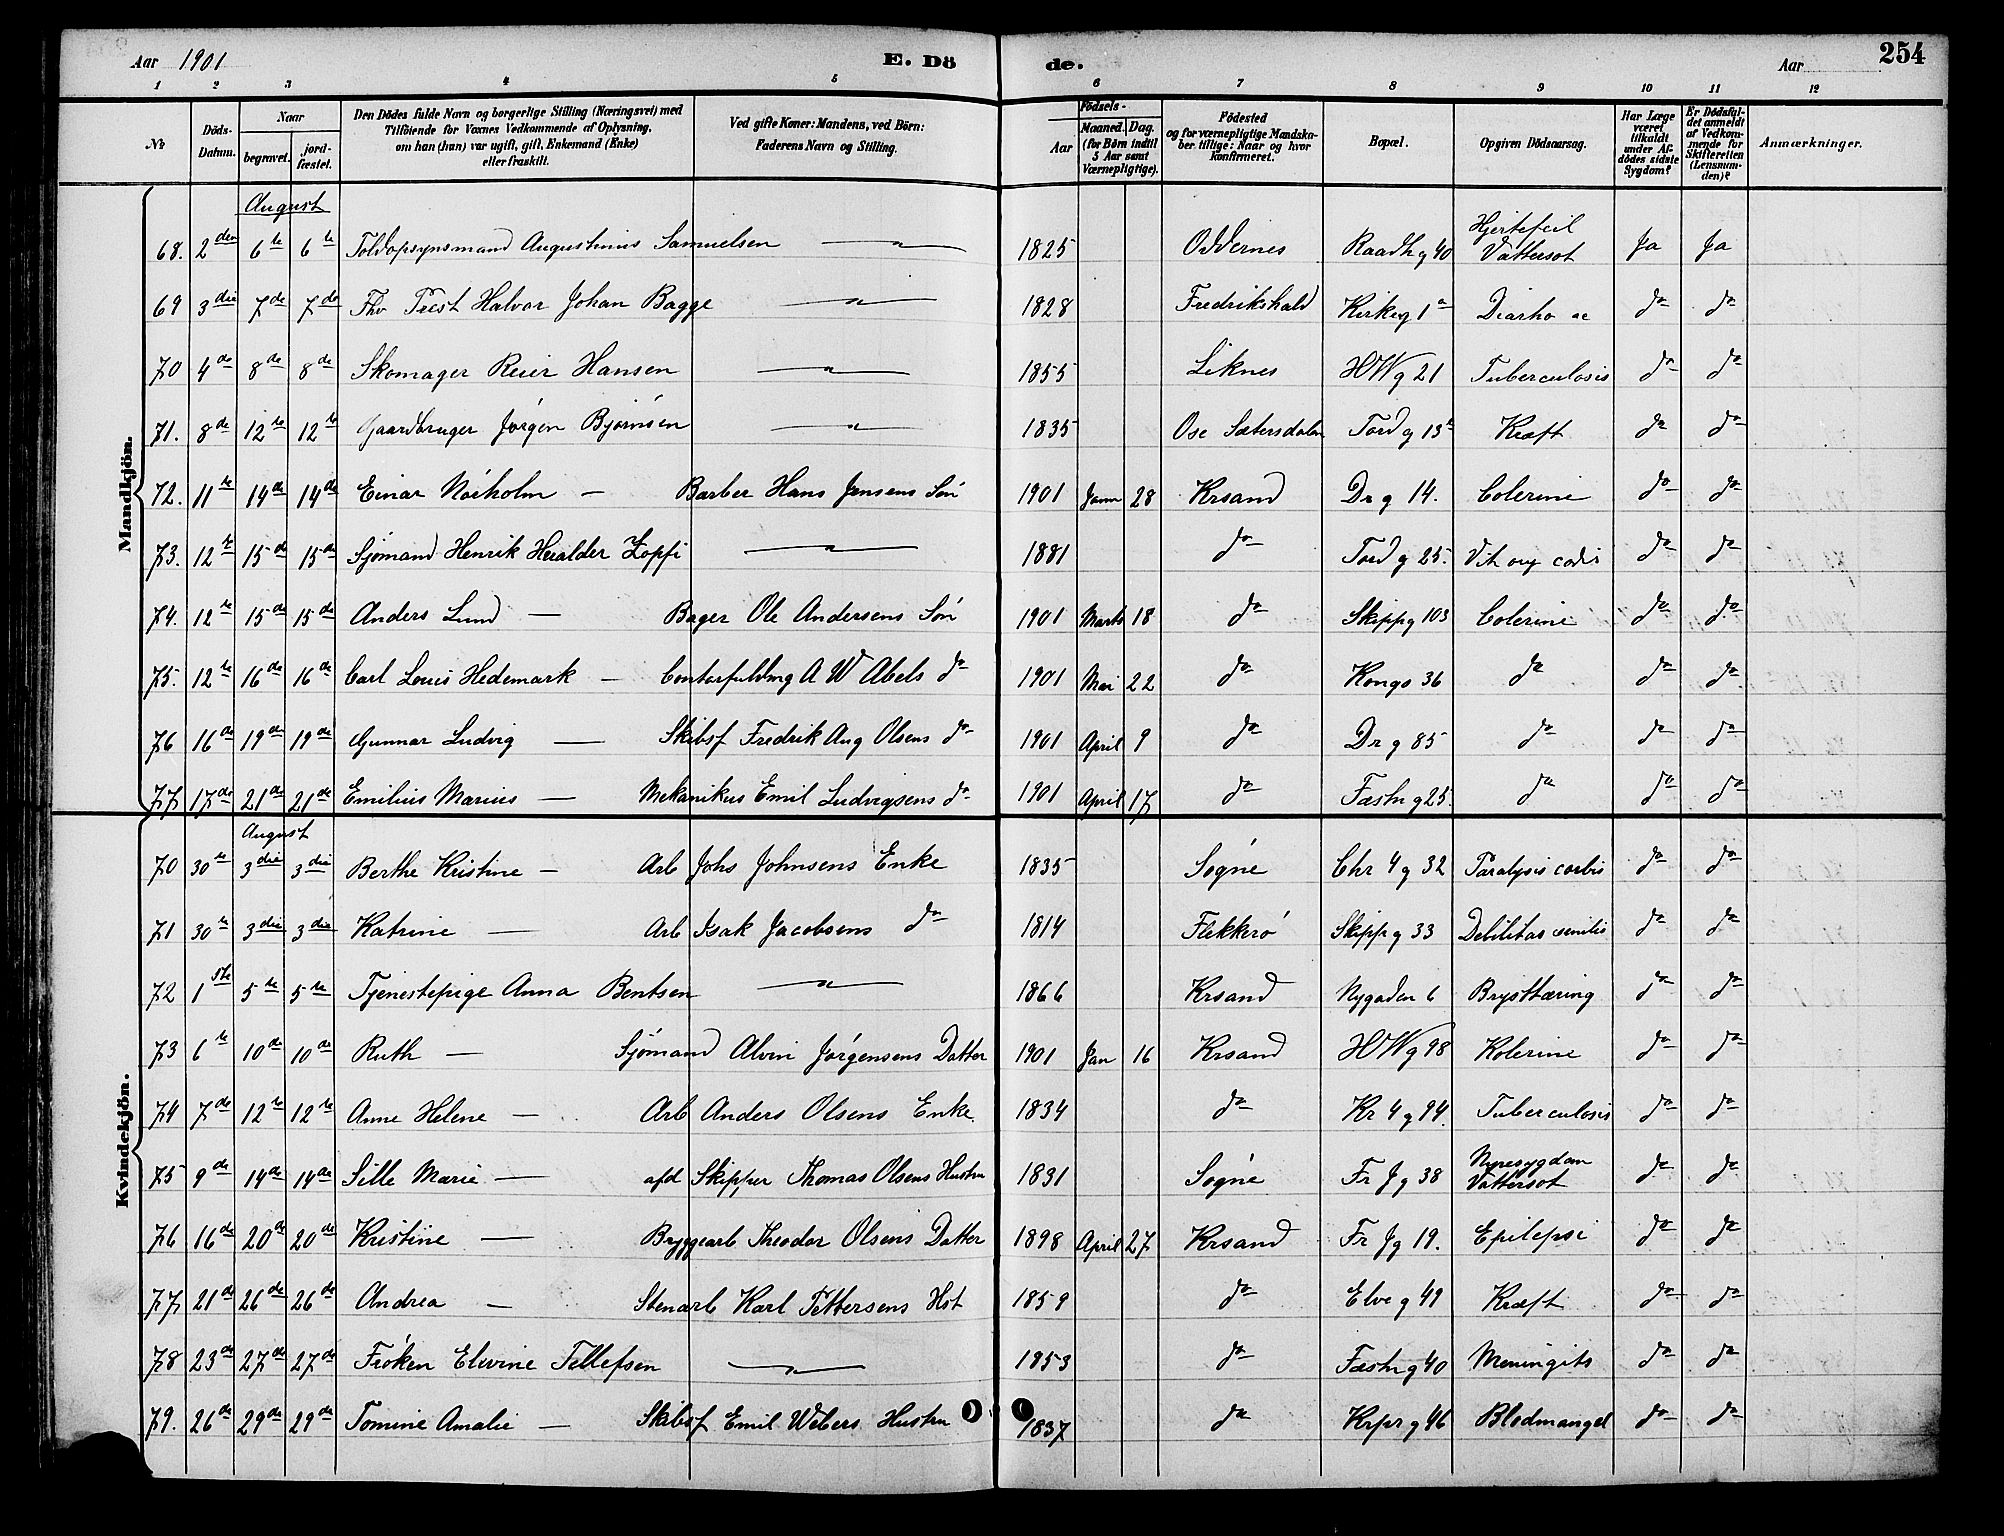 Aar 1901 E. Dö de. Aar 254
1 2 3 4 5 6 7 8 9 10 11 12
No Döds-Datum. Naar begravet. jord-fæstet. Den Dödes fulde Navn og borgerlige Stilling (Næringsvei) med Tilföiende for Voxnes Vedkommende af Oplysning, om han (hun) var ugift, gift, Enkemand (Enke) eller fraskilt. Ved gifte Koner: Mandens, ved Börn: Faderens Navn og Stilling. Födsels- Aar Maaned. Dag. (for Börn indtil 5 Aar samt Værnepligtige). Födested og for værnepligtige Mandskaber tillige: Naar og hvor konfirmeret. Bopæl. Opgiven Dödsaarsag. Har Læge været tilkaldt under Afdödes sidste Sygdom? Er Dödsfaldet anmeldt af Vedkommende for Skifteretten (Lensmanden)? Anmærkninger.
Mandkjön.
August
68. 2den 6te 6te Toldopsynsmand Augustinius Samuelsen — 1825 Oddernes Raadhg 40 Hjertefeil Vattersot Ja Ja
69 3die 7de 7de Fhv Præst Halvor Johan Bagge — 1828 Fredrikshald Kirkeg 1a Diarho ae do do
70 4de 8de 8de Skomager Reier Hansen — 1855 Liknes HWg 21 Tuberculosis do do
71. 8de 12te 12te Gaardbruger Jørgen Bjørnsen — 1835 Ose Sætersdalen Tord g 13 Kræft do do
72. 11te 14de 14de Einar Norholm — Barber Hans Jensens Søn 1901 Janu 28 Krsand Dr g 14. Colerine do do
73. 12te 15de 15de Sjømand Henrik Heralder Zopfi — 1881 do Tord g 25. Vit org cordis do do
74. 12te 15de 15de Anders Lund — Bager Ole Andersens Søn 1901 Marts 18 do Skippg 103 Colerine do do
75. 12te 16de 16de Carl Louis Hedemark — Contorfuldmg A W Abels do 1901 Mai 22 do Kongs 36 do do do
76 16de 19de 19de Gunnar Ludvig — Skibsf Fredrik Aug Olsens do 1901 April 9 do Dr g 85 do do do
77 17de 21de 21de Emilius Marius — Mekanikus Emil Ludvigsens do 1901 April 17 do Fæstn g 25. do do do
Kvindekjön.
August
70 30te 3die 3die Berthe Kristine — Arb Johs Johnsens Enke 1835 Søgne Chr 4 g 32 Paralysis cordis do do
71 30te 3die 3die Katrine — Arb Isak Jacobsens do 1814 Flekkerø Skippg 33 Debilitas senilis do do
72 1ste 5te 5te Tjenestepige Anna Bentsen — 1866 Krsand Nygaden 6 Brysttæring do do
73 6te 10de 10de Ruth — Sjømand Alvin Jørgensens Datter 1901 Jan 16 Krsand HWg 98 Kolerine do do
74 7de 12te 12te Anne Helene — Arb Anders Olsens Enke. 1834 do Kr 4 g 94. Tuberculosis do do
75 9de 14de 14de Sille Marie — afd Skipper Thomas Olsens Hustru 1831 Søgne Fr J g 38 Nyresygdom Vattersot do do
76 16de 20de 20de Kristine — Bryggearb Theodor Olsens Datter 1898 April 27 Krsand Fr J g 19. Epilepsi do do
77 21de 26de 26de Andrea — Stenarb Karl Pettersens Hst 1859 do Elve g 49 Kræft do do
78 23de 27de 27de Frøken Elevine Tellefsen — 1853 do Fæstn g 40 Meningits do do
79. 26de 29de 29de Tomine Amalie — Skibsf Emil Webers Hustru 1837 do Krpr g 46 Blodmangel do do